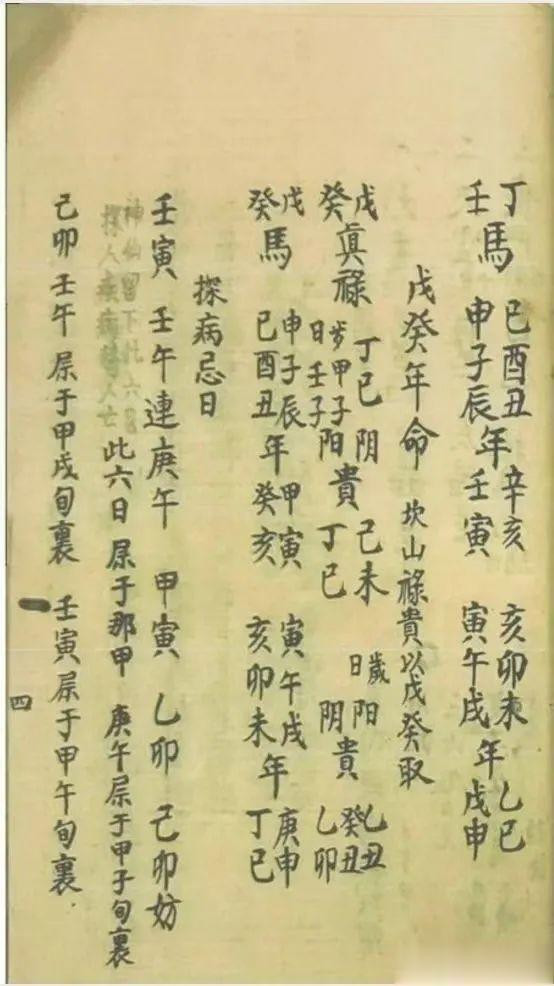 丁壬馬 巳酉丑申子辰年 辛亥壬寅 亥卯未寅午戌年 乙巳戊申
戊癸年命 坎山祿貴以戊癸取
戊癸真祿 丁巳 歲甲子日壬子 阴阳貴 己未丁巳 歲日 阳阴貴 乙丑癸丑乙卯
戊癸馬 申子辰巳酉丑年 甲寅癸亥 寅午戌亥卯未年 庚申丁巳
探病忌日
壬寅 壬午連庚午 甲寅 乙卯 己卯妨
神仙留下此六日
探人疾病替人亡
此六日属于那甲 庚午属于甲子旬裏
己卯 壬午属于甲戌旬裏 壬寅属于甲午旬裏.
四